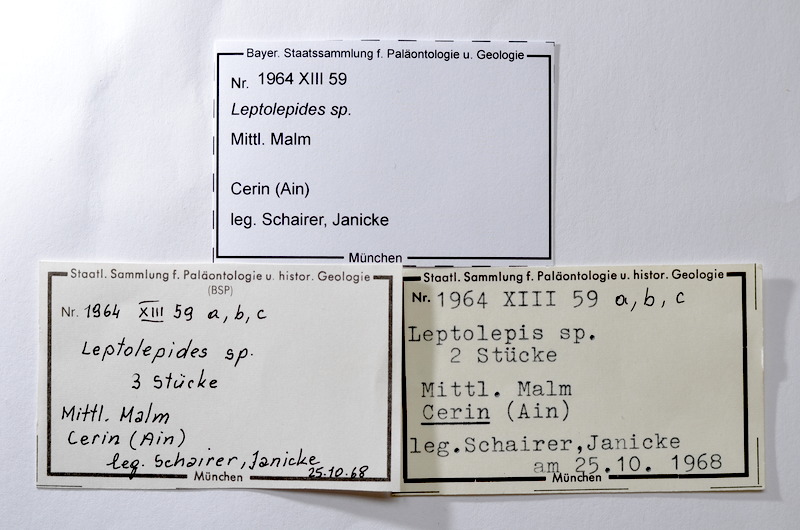 Bayer. Staatssammlung f. Paläontologie u. Geologie
Nr. 1964 XIII 59
Leptolepides sp.
Mittl. Malm
Cerin (Ain)
leg. Schairer, Janicke
München
Staatl. Sammlung f. Paläontologie u. histor. Geologie
(BSP)
Nr. 1964 XIII 59 a, b, c
Leptolepides sp.
3 Stücke
Mittl. Malm
Cerin (Ain)
leg. Schairer, Janicke
25.10.68
München
Staatl. Sammlung f. Paläontologie u. histor. Geologie
Nr. 1964 XIII 59 a, b, c
Leptolepis sp.
2 Stücke
Mittl. Malm
Cerin (Ain)
leg.Schairer,Janicke
am 25.10. 1968
München